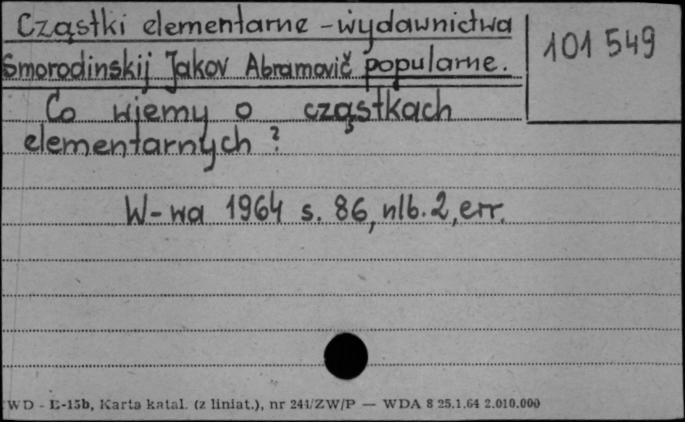 Cząstki elementarne - wydawnictwa
101 549
Smorodinskij Jakov Abramovič popularne.
Co wiemy o cząstkach
elementarnych?
W-wa 1964 s. 86, nlb. 2, err.
WD - E-15b, Karta katal. (z liniat.), nr 241/ZW/P — WDA 8 25.1.64 2.010.000